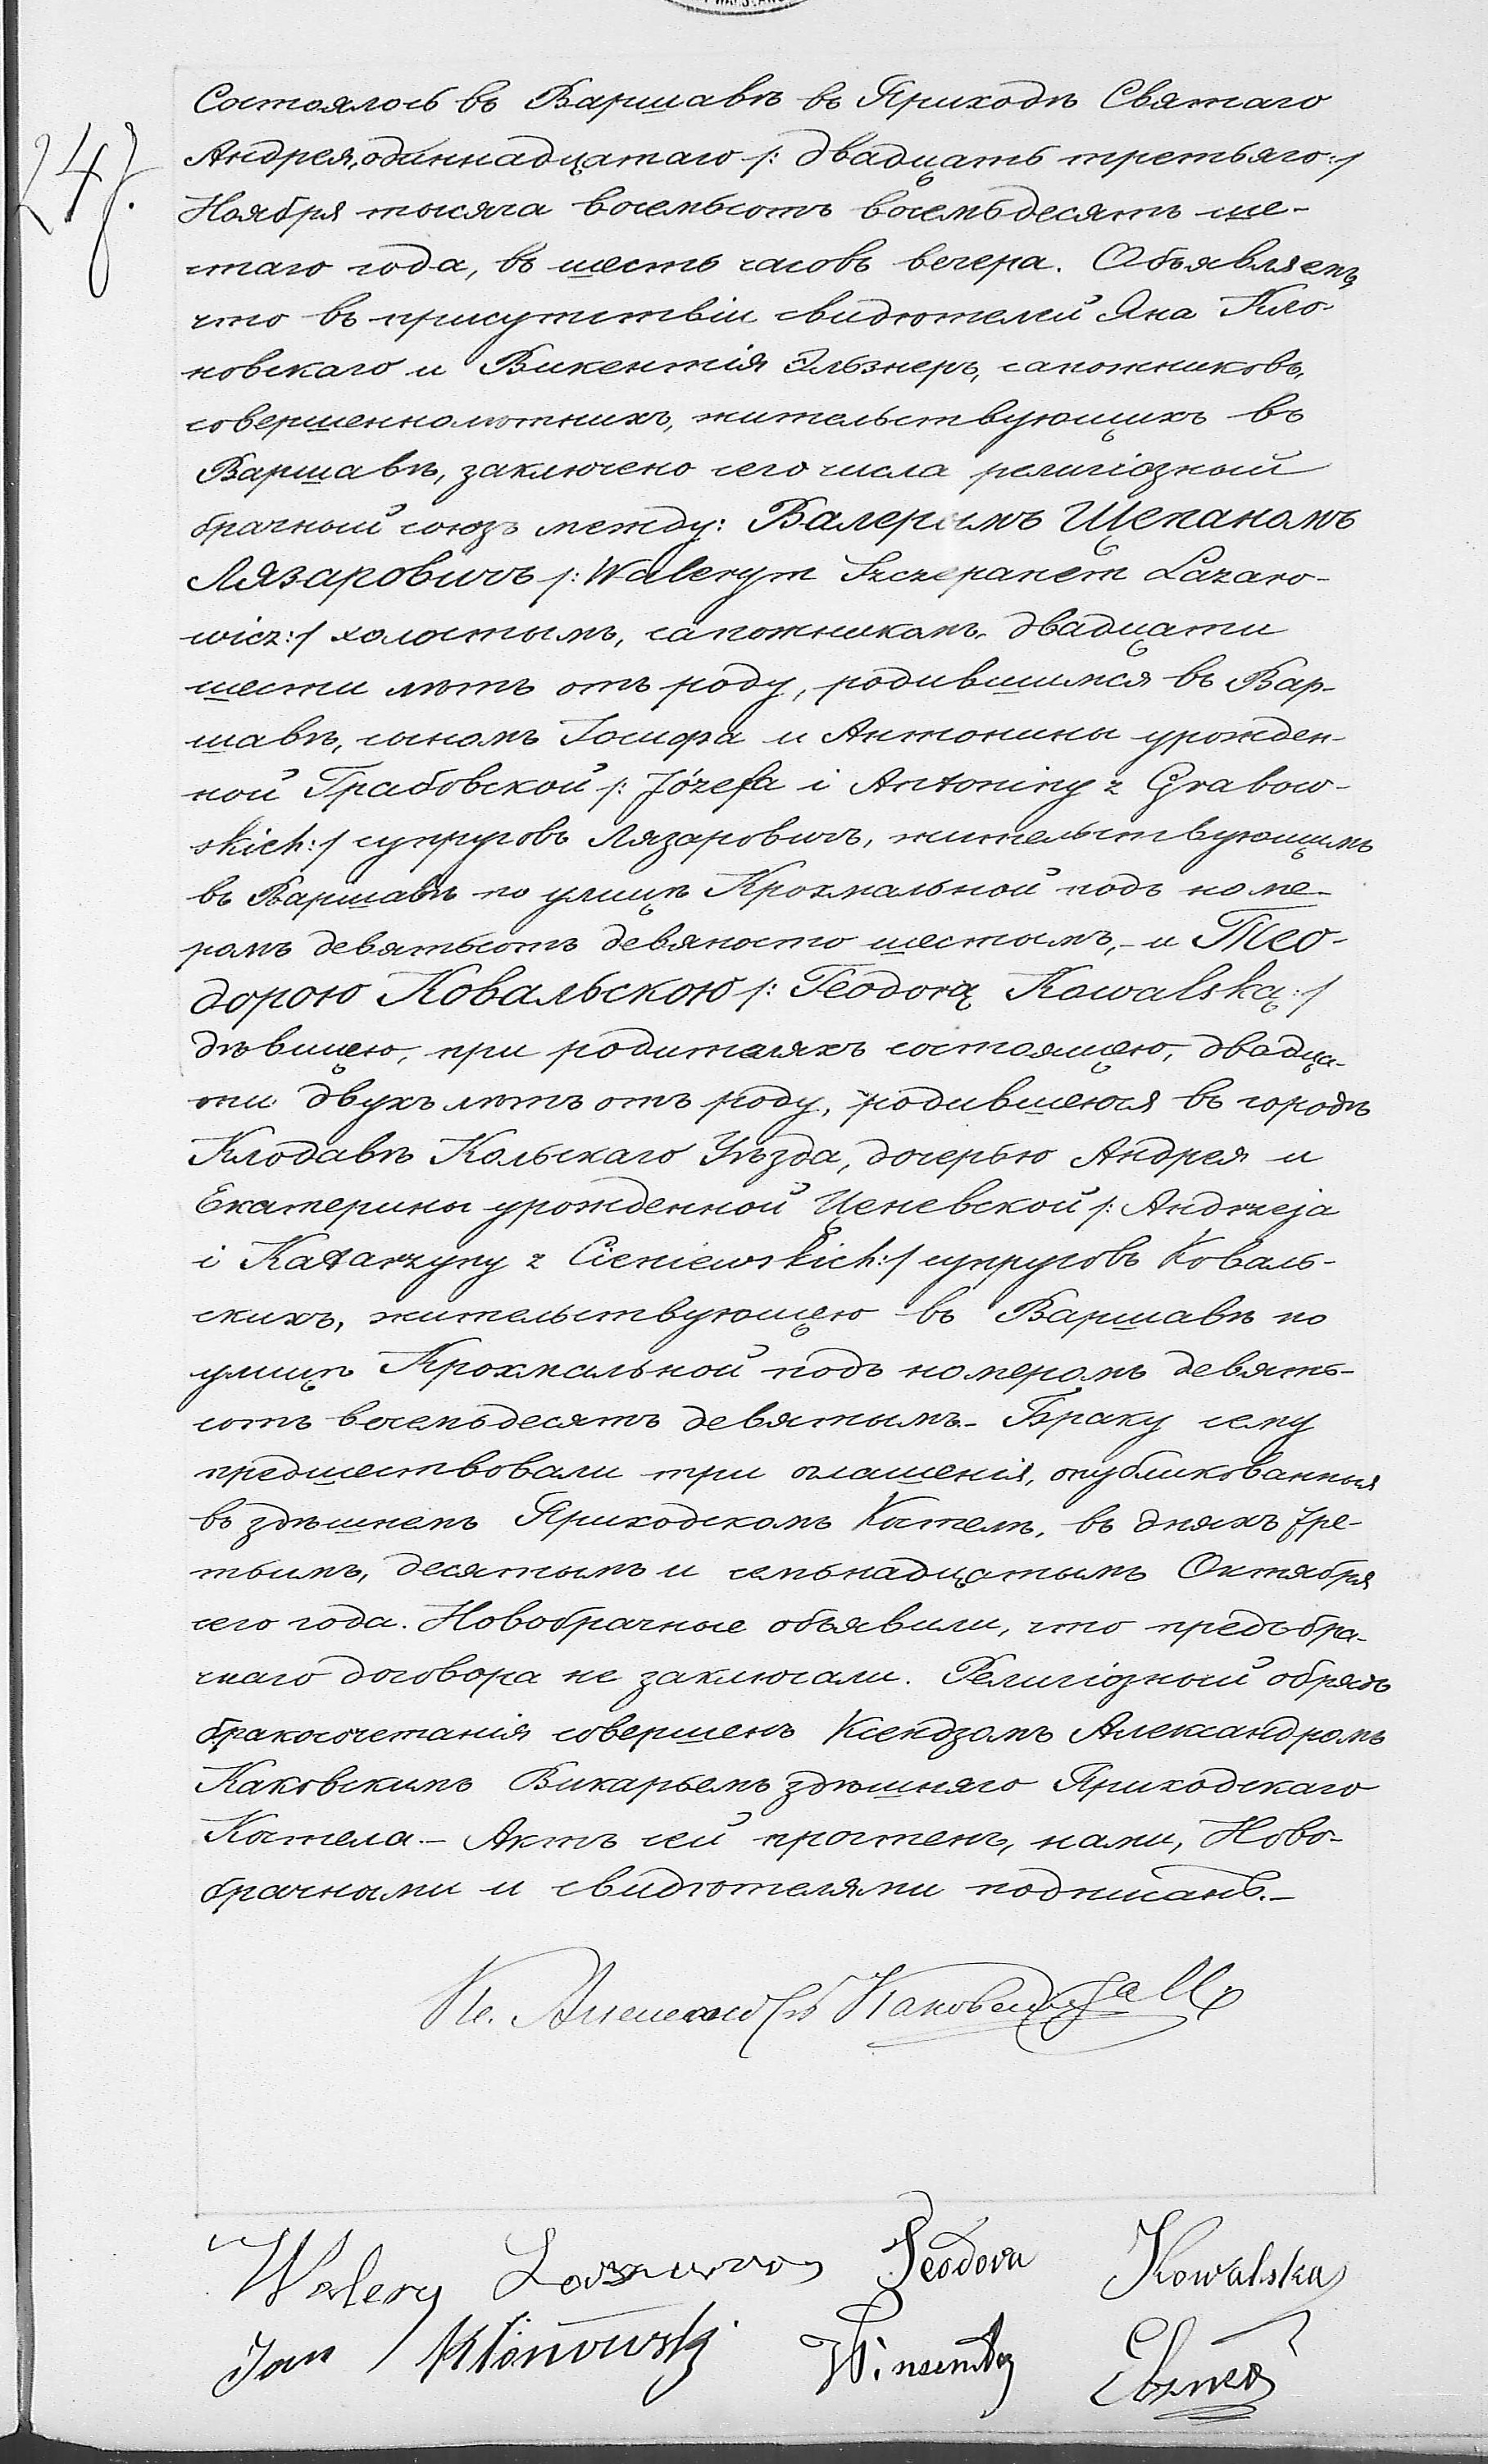 247.
Состоялось въ Варшавѣ въ Приходѣ Святаго
Андрея, одиннадцатаго /: двадцать третьяго :/
Ноября тысяча восемьсотъ восемьдесятъ ше-
стаго года, въ шесть часовъ вечера. Объявляемъ
что въ присутствіи свидѣтелей Яна Кло-
новскаго и Викентія Эльзнеръ, сапожниковъ,
совершеннолѣтнихъ, жительствующихъ въ
Варшавѣ, заключено сего числа религіозный
брачный союзъ между: Валерымъ Щепаномъ
Лязаровичъ /: Walerym Szczepanem Lazaro-
wicz :/ холостымъ, сапожникомъ, двадцати
шести лѣтъ отъ роду, родившимся въ Вар-
шавѣ, сыномъ Іосифа и Антонины урожден-
ной Грабовской /: Józefa i Antoniny z Grabow-
skich :/ супруговъ Лязаровичъ, жительствующимъ
въ Варшавѣ по улицѣ Крохмальной подъ номе-
ромъ девятьсотъ девяносто шестымъ, - и Тео-
дорою Ковальскою /: Teodorą Kowalską :/
дѣвицею, при родителяхъ состоящею, двадца-
ти двухъ лѣтъ отъ роду, родившеюся въ городѣ
Клодавѣ Кольскаго Уѣзда, дочерью Андрея и
Екатерины урожденной Ценевской /: Andrzeja
i Katarzyny z Cieniewskich :/ супруговъ Коваль-
скихъ, жительствующею въ Варшавѣ по
улицѣ Крохмальной подъ номеромъ девять-
сотъ восемьдесятъ девятымъ. - Браку сему
предшествовали три оглашенія, опубликованныя
въ здѣшнемъ Приходскомъ Костелѣ, въ дняхъ тре-
тьимъ, десятымъ и семьнадцатымъ Октября
сего года. Новобрачные объявили, что предъбра-
чнаго договора не заключали. Религіозный обрядъ
бракосочетанія совершенъ Ксендзомъ Александромъ
Каковскимъ Викарьемъ здѣшняго Приходскаго
Костела. - Актъ сей прочтенъ, нами, Ново-
брачными и свидѣтелями подписанъ. -
Кс. Александръ Каковскій
Walery Teodora Kowalska
Jan Klonowski Wincenty Elzner